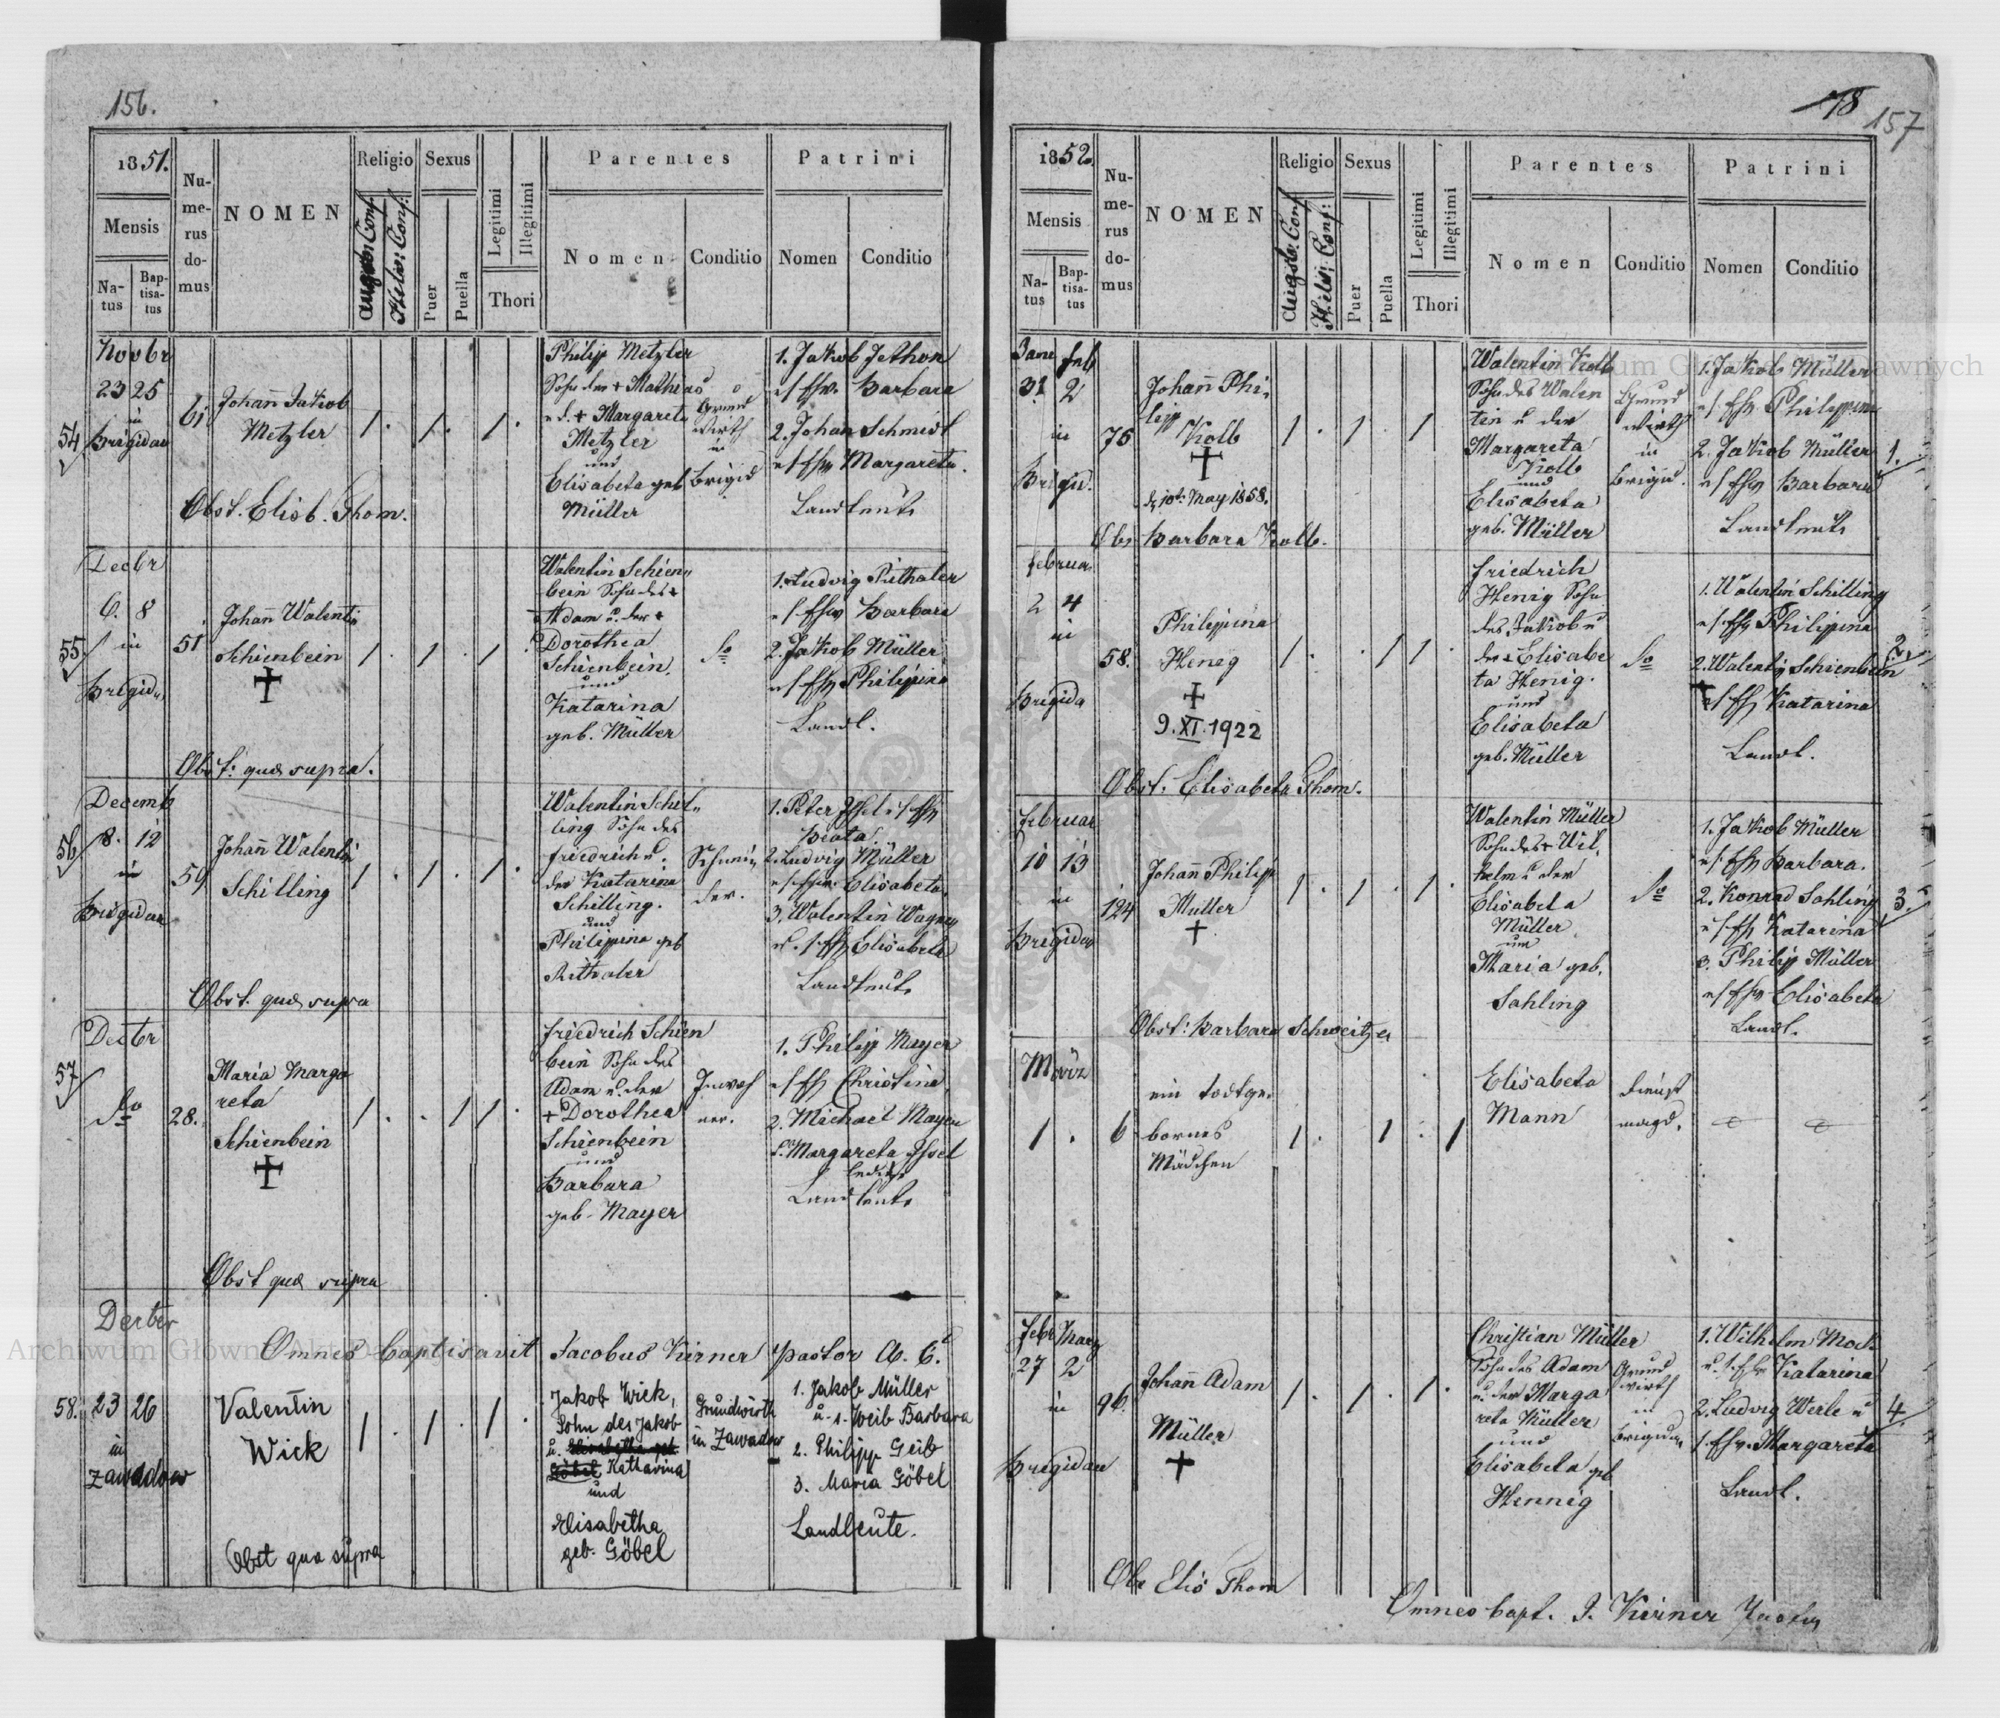 156.
1851.
Mensis
Na-
tus
Bap-
tisa-
tus
Nu-
me-
rus
do-
mus
NOMEN
Religio
Augsb: Conf.
Helv: Conf:
Sexus
Puer
Puella
Legitimi
Illegitimi
Thori
Parentes
Nomen
Conditio
Patrini
Nomen
Conditio
54
Novbr
23 25
in
Brigidau
61
Johañ Jakob
Metzler
1 . 1 . 1 .
Philip Metzler
Sohn des + Mathias
u d. + Margareta
Metzler
und
Elisabeta geb
Müller
Grund
wirth
in
Brigid
1. Jakob Jethon
Barbara
2. Johan Schmidt
Margareta.
Landleute
Obst. Elisb. Thom.
55.
Decbr
6. 8
in
Brigid
51
Johañ Walentin
Schienbein
1 . 1 . 1 .
Walentin Schien„
bein Sohn des +
Adam u. der +
Dorothea
Schienbein
und
Katarina
geb. Müller
do
1. Ludvig Rithaler
Barbara
2. Jakob Müller
Philipina
Landl.
Obst: quæ supra.
56
Decemb
8. 12
in
Brigidau
59
Johañ Walentin
Schilling
1 . 1 . 1 .
Walentin Schil„
ling Sohn des
Friedrich u.
der Katarina
Schilling.
und
Philippina geb
Rithaler
Schnei„
der.
1. Peter Issel
Beata.
2. Ludvig Müller
Elisabeta.
3. Walentin Wagner
Elisabeta
Landleute
Obst. quæ supra
57
Decbr
do
28.
Maria Marga
reta
Schienbein
1 . . 1 1 .
Friedrich Schien
bein Sohn des
Adam u. der
+ Dorothea
Schienbein
und
Barbara
geb. Mayer
Inwoh
ner.
1. Philipp Mayer
Christina
2. Michael Mayer
Margareta Issel
ledige
Landleute
Obst quæ supra
Omnes baptisavit Jacobus Kirner pastor A. C.
58.
Decbr
23 26
in
Zawadow
Valentin
Wick
1 . 1 . 1 .
Jakob Wick,
Sohn des Jakob
u. Elisabetha geb.
Göbel Katharina
und
Elisabetha
geb. Göbel
Grundwirth
in Zawadow
1. Jakob Müller
u. s. Weib Barbara
2. Philipp Geib
3. Maria Göbel
Landleute.
Obst quæ supra
78
157
1852.
Mensis
Na-
tus
Bap-
tisa-
tus
Nu-
me-
rus
do-
mus
NOMEN
Religio
Augsb: Conf
Helv: Conf:
Sexus
Puer
Puella
Legitimi
Illegitimi
Thori
Parentes
Nomen
Conditio
Patrini
Nomen
Conditio
Jane Feb
31 2
in
Brigid.
75
Johañ Phi„
lipp
Kolb
d 10t. May 1858.
1 . 1 . 1
Walentin Kolb
Sohn des Walen
tin u der
Margareta
Kolb
und
Elisabeta
geb. Müller
Grund
wirth
in
Brigid.
1. Jakob Müller
Philippina
2. Jakob Müller
Barbara
Landleute
1.
Obs Barbara Kolb.
Februar
2 4
in
Brigida
58.
Philippina
Heneg
9. XI. 1922
1 . . 1 1 .
Friedrich
Henig Sohn
des Jakob u
der + Elisabe
ta Henig.
und
Elisabeta
geb. Müller
do
1. Walentin Schilling
Philippina
2. Walentin Schienbein
Katarina
Landl.
2.
Obst. Elisabeta Thom.
Februar
10 13
in
Brigidau
124
Johañ Philip
Muller
1 . 1 . 1 .
Walentin Müller
Sohn des + Wil„
helm u der
Elisabeta
Müller
un
Maria geb.
Sahling
do
1. Jakob Müller
Barbara.
2. Konrad Sahling
Katarina
3. Philip Müller
Elisabeta
Landl.
3.
Obst: Barbara Schweitzer
März
1 . 6
ein todtge„
bornes
Mädchen
1 . 1 . 1
Elisabeta
Mann
Dienst
magd.
Febr Marz
27 2
in
Brigidau
96.
Johañ Adam
Müller
1 . 1 . 1 .
Christian Müller
Sohn des Adam
u. der Marga
reta Müller
und
Elisabeta geb
Hennig
Grund
wirth
in
Brigidau
1. Wilhelm Mock
Katarina
2. Ludvig Werle u
Margareta
Landl.
4
Obs Elis Thom
Omnes bapt. J. Kirner Pastor
Archiwum Główne Akt Dawnych